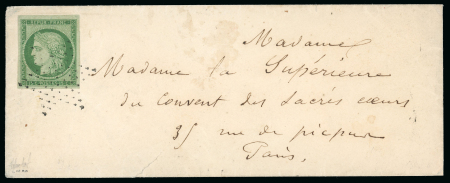 REPUB. FRANC.
Madame
Madame la Supérieure
du Couvent des Sacrés cœurs
35 rue de picpus
Paris.